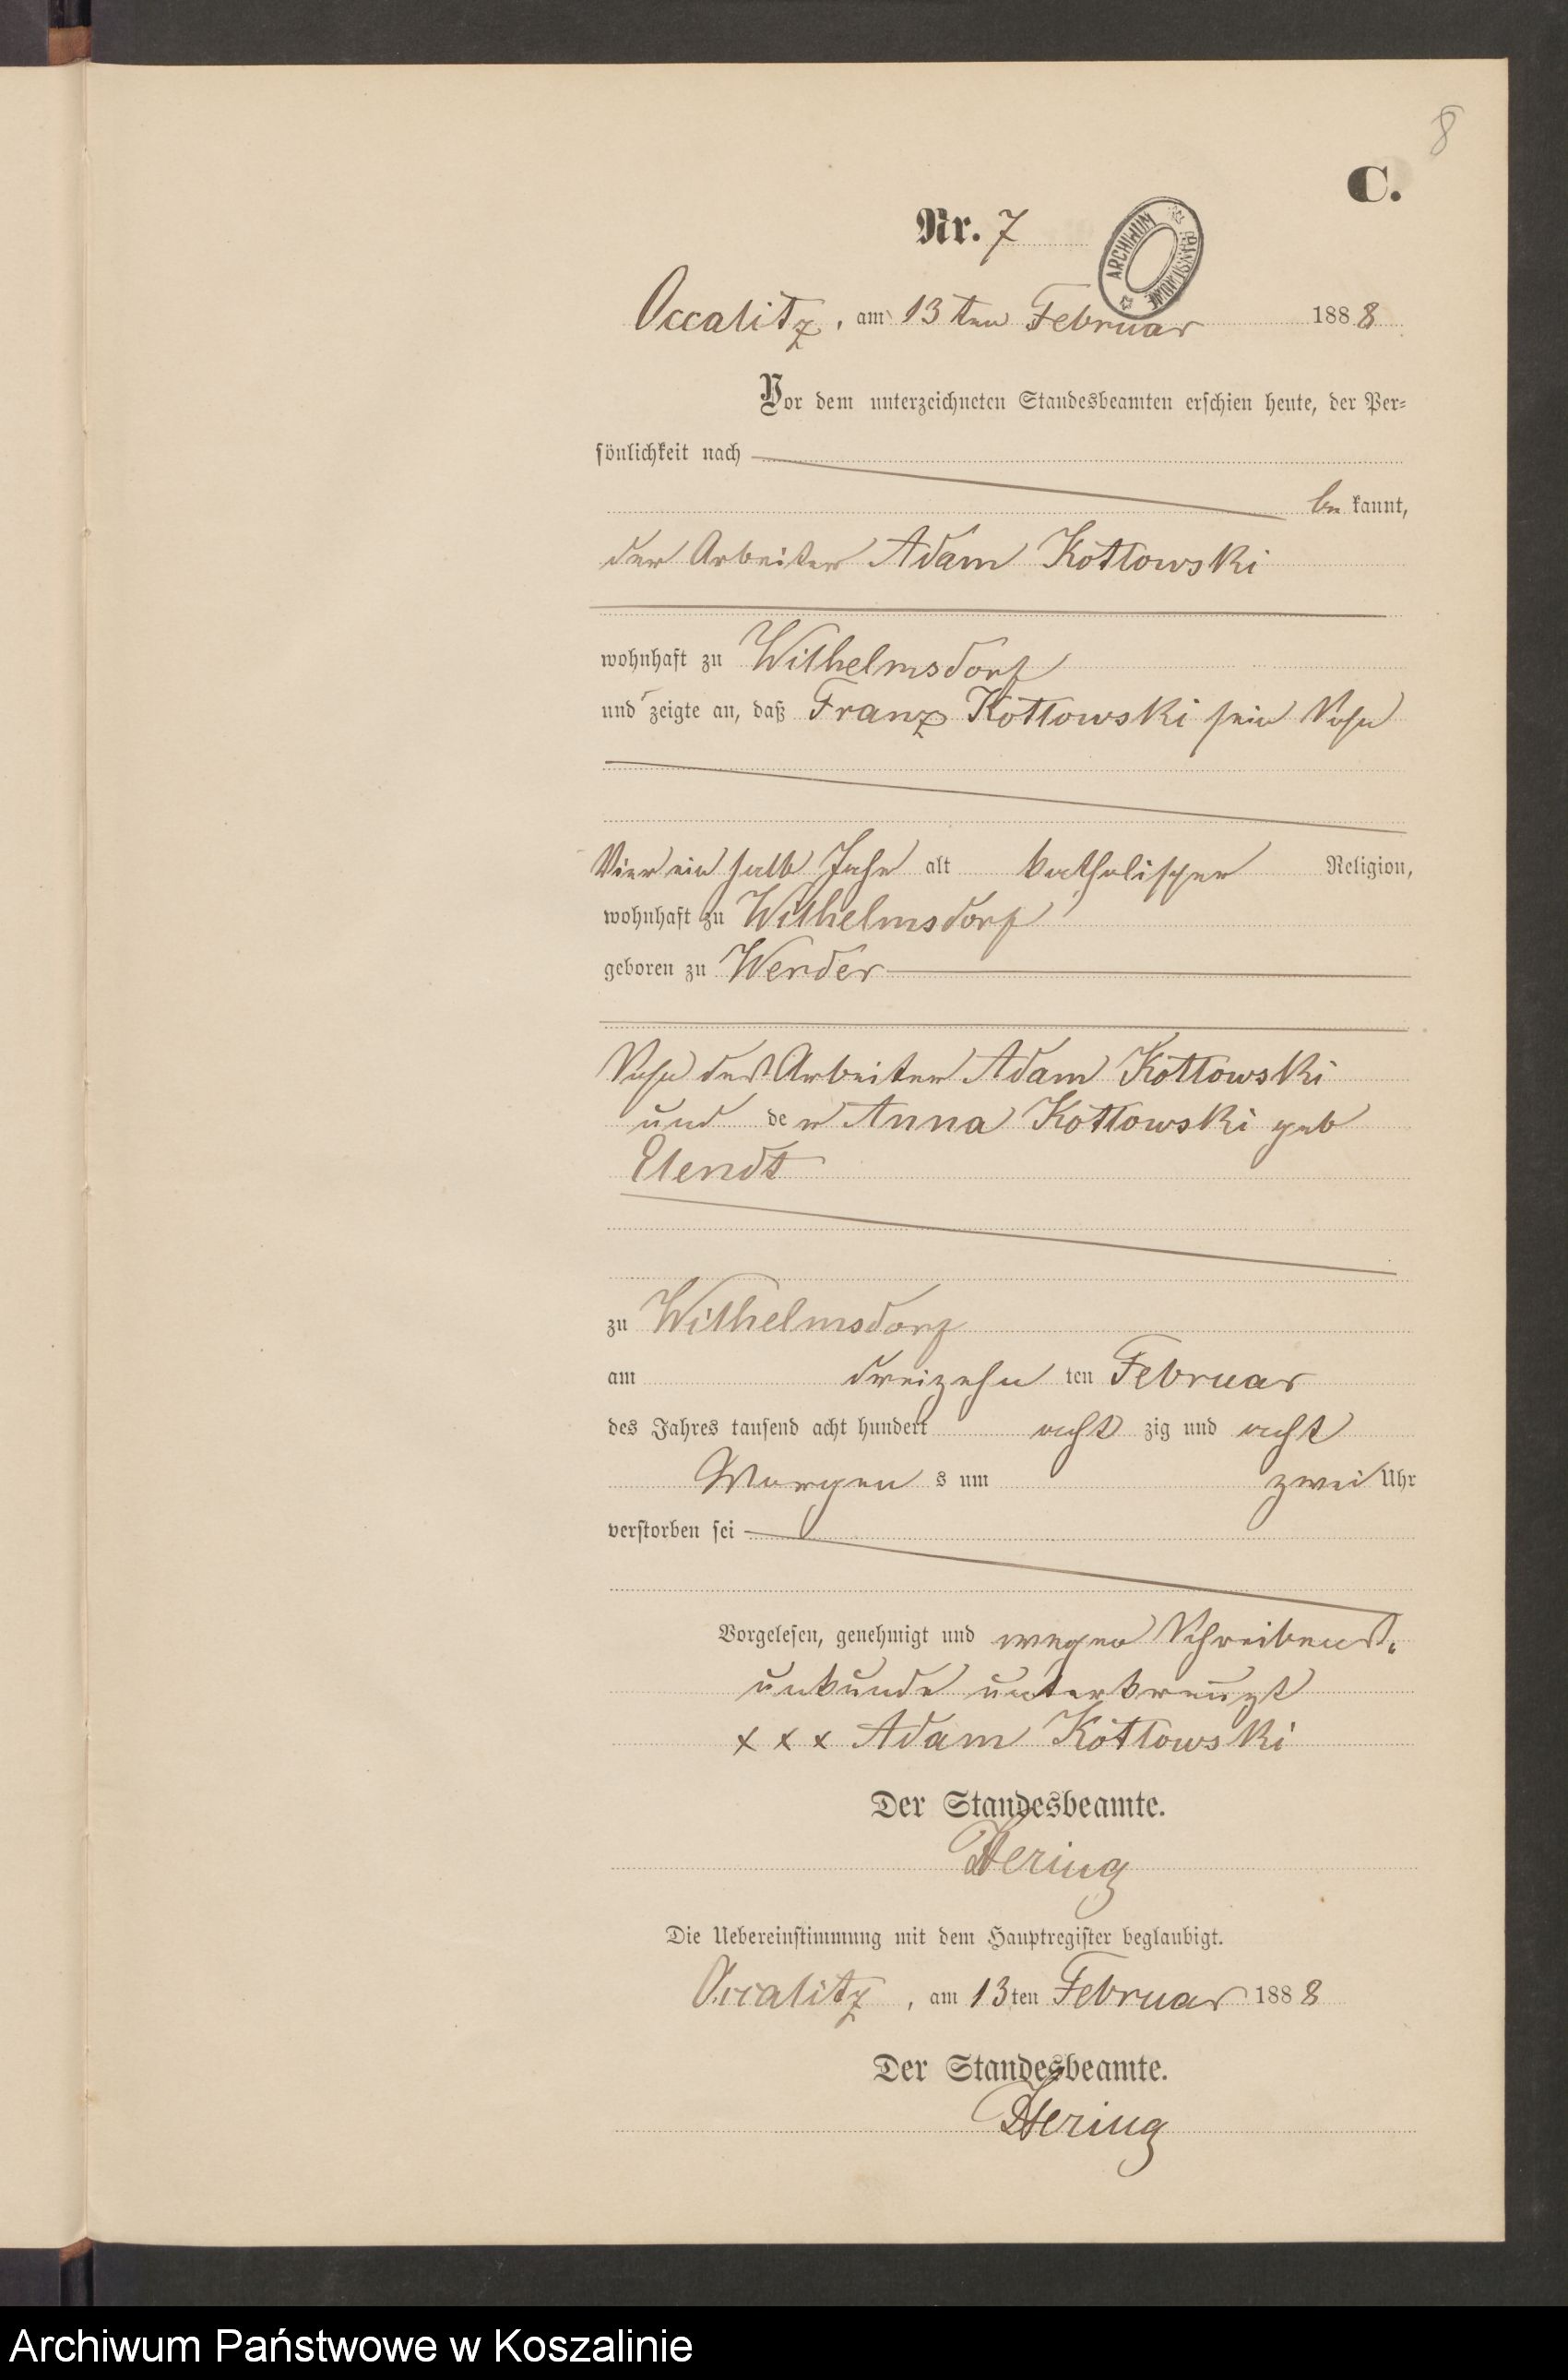 8
C.
Nr. 7
ARCHIWUM PAŃSTWOWE
Occalitz, am 13ten Februar 1888
Vor dem unterzeichneten Standesbeamten erschien heute, der Per-
sönlichkeit nach
be kannt,
der Arbeiter Adam Kottowski
wohnhaft zu Wilhelmsdorf
und zeigte an, daß Franz Kottowski sein Sohn
Vier ein halb Jahr alt katholischer Religion,
wohnhaft zu Wilhelmsdorf
geboren zu Werder
Sohn des Arbeiter Adam Kottowski
und der Anna Kottowski geb
Elendt
zu Wilhelmsdorf
am dreizehn ten Februar
des Jahres tausend acht hundert acht zig und acht
Morgen s um zwei Uhr
verstorben sei
Vorgelesen, genehmigt und wegen Schreibens-
unkunde unterkreuzt
x x x Adam Kottowski
Der Standesbeamte.
Hering
Die Uebereinstimmung mit dem Hauptregister beglaubigt.
Occalitz, am 13ten Februar 1888
Der Standesbeamte.
Hering
Archiwum Państwowe w Koszalinie